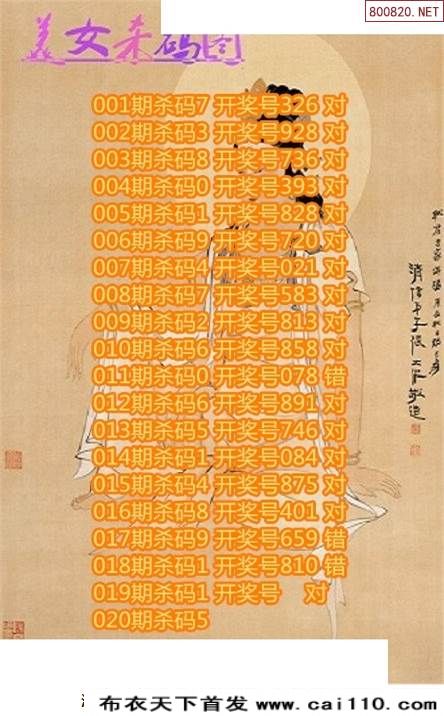 800820.NET
美女杀码图
001期杀码7 开奖号326 对
002期杀码3 开奖号928 对
003期杀码8 开奖号736 对
004期杀码0 开奖号393 对
005期杀码1 开奖号828 对
006期杀码9 开奖号720 对
007期杀码4 开奖号021 对
008期杀码7 开奖号583 对
009期杀码2 开奖号813 对
010期杀码6 开奖号858 对
011期杀码0 开奖号078 错
012期杀码6 开奖号891 对
013期杀码5 开奖号746 对
014期杀码1 开奖号084 对
015期杀码4 开奖号875 对
016期杀码8 开奖号401 对
017期杀码9 开奖号659 错
018期杀码1 开奖号810 错
019期杀码1 开奖号 对
020期杀码5
布衣天下首发 www.cai110.com